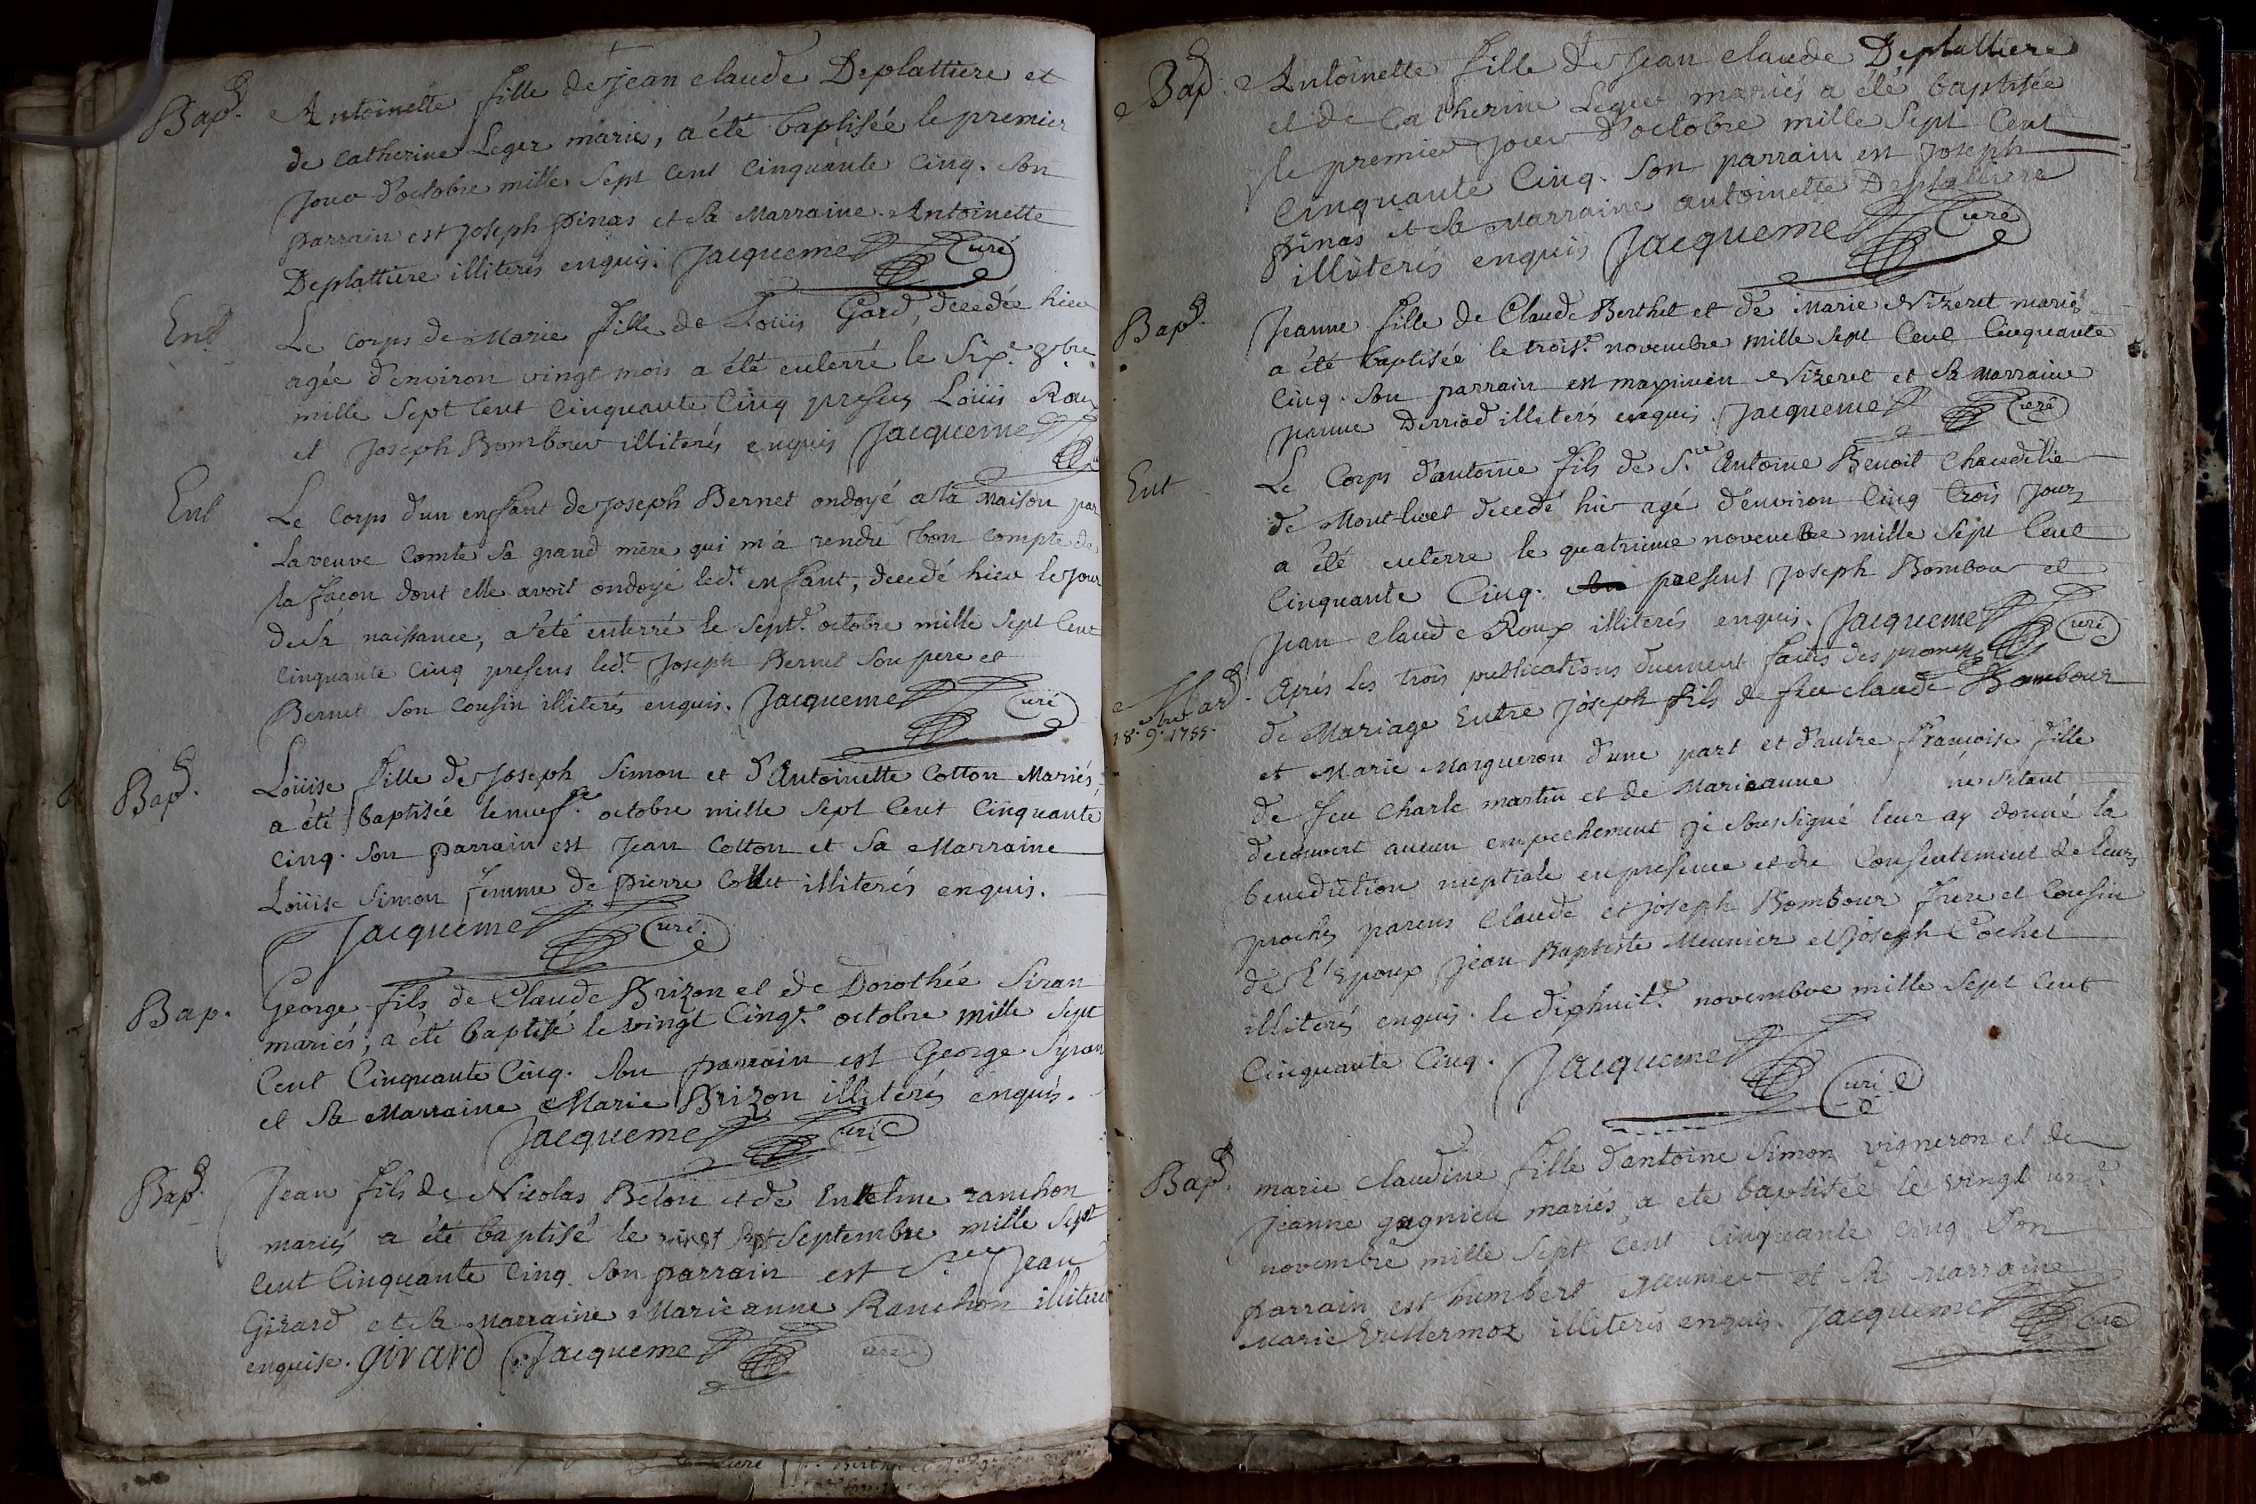 Bap. Antoinette fille de Jean claude Deplattiere et
de catherine Leger mariés, a été baptisée le premier
Jour d'octobre mille Sept Cent Cinquante Cinq. Son
parrain est Joseph pinas et Sa Marraine Antoinette
Deplattiere illiterés enquis. Jacquemet Curé
Ent. Le Corps de Marie fille de Loüis Gard, decedée hier
agée d'environ vingt mois a été enterré le Sixe. 8bre.
mille Sept Cent Cinquante Cinq presens Loüis Roux
et Joseph Bombour illiterés enquis Jacquemet
Ent Le Corps d'un enfant de Joseph Bernet ondoyé a la Maison par
La veuve Comte Sa grand mère qui m'a rendu bon Compte de
la façon dont elle avoit ondoyé led.t enfant, decedé hier le Jour
de Sa naissance, a été enterré le Sept.e octobre mille Sept Cent
Cinquante Cinq presens led.t Joseph Bernet Son pere et
Bernet Son Cousin illiterés enquis. Jacquemet Curé
Bap. Loüise fille de Joseph Simon et d'Antoinette Cotton Mariés,
a été baptisée le neuf.e octobre mille Sept Cent Cinquante
Cinq. Son parrain est Jean Cotton et Sa Marraine
Loüise Simon femme de pierre Collet illiterés enquis.
Jacquemet Curé.
Bap. George fils de Claude Brizon et de Dorothée Siran
mariés, a été baptisé le vingt Cinq.e octobre mille Sept
Cent Cinquante Cinq. Son parrain est George Syran
et Sa Marraine Marie Brizon illiterés enquis.
Jacquemet Curé
Bap. Jean fils de Nicolas Belou et de ranchon
mariés a été baptisé le vingt Sept Septembre mille Sept
Cent Cinquante Cinq. Son parrain est Jean
Girard et Sa Marraine Marieanne Ranchon illiterée
enquise. girard Jacquemet curé
Bap. Antoinette fille de Jean claude Deplattiere
et de Catherine Leger mariés a été baptisée
le premier Jour d'octobre mille Sept Cent
Cinquante Cinq. Son parrain est Joseph
pinas et Sa Marraine antoinette Deplattiere
illiterés enquis Jacquemet Curé
Bap. Jeanne fille de Claude Berthet et de Marie Nizeret mariés
a été baptisée le trois.e novembre mille Sept Cent Cinquante
Cinq. Son parrain est maximien Nizeret et Sa Marraine
Jeanne Derriod illiterés enquis. Jacquemet Curé
Ent Le Corps d'antoine fils de S.r Antoine Benoit Chaudillie
de Mont-luel decedé hier agé d'environ Cinq trois Jours
a été enterré le quatrieme novembre mille Sept Cent
Cinquante Cinq. presens Joseph Bombour et
Jean claude Roux illiterés enquis. Jacquemet Curé
Mar. Aprés les trois publications duement faites des promesses
18.e 9.bre 1755. de Mariage Entre Joseph fils de feu claude Bombour
et Marie Margueron d'une part et d'autre francoise fille
de feu Charle martin et de Marieanne ne S'étant
decouvert aucun empechement Je Soussigné leur ay donné la
benediction nuptiale en presence et du Consentement de leurs
proches parens Claude et Joseph Bombour frere et Cousin
de l'Epoux Jean Baptiste Meunier et Joseph Cochet
illiterés enquis. le dixhuit.e novembre mille Sept Cent
Cinquante Cinq. Jacquemet Curé
Bap. marie claudine fille d'antoine Simon vigneron et de
Jeanne gagnieu mariés, a été baptisée le vingt un.e
novembre mille Sept Cent Cinquante Cinq Son
parrain est humbert Meunier et Sa Marraine
Marie Vullermoz illiterés enquis. Jacquemet Curé